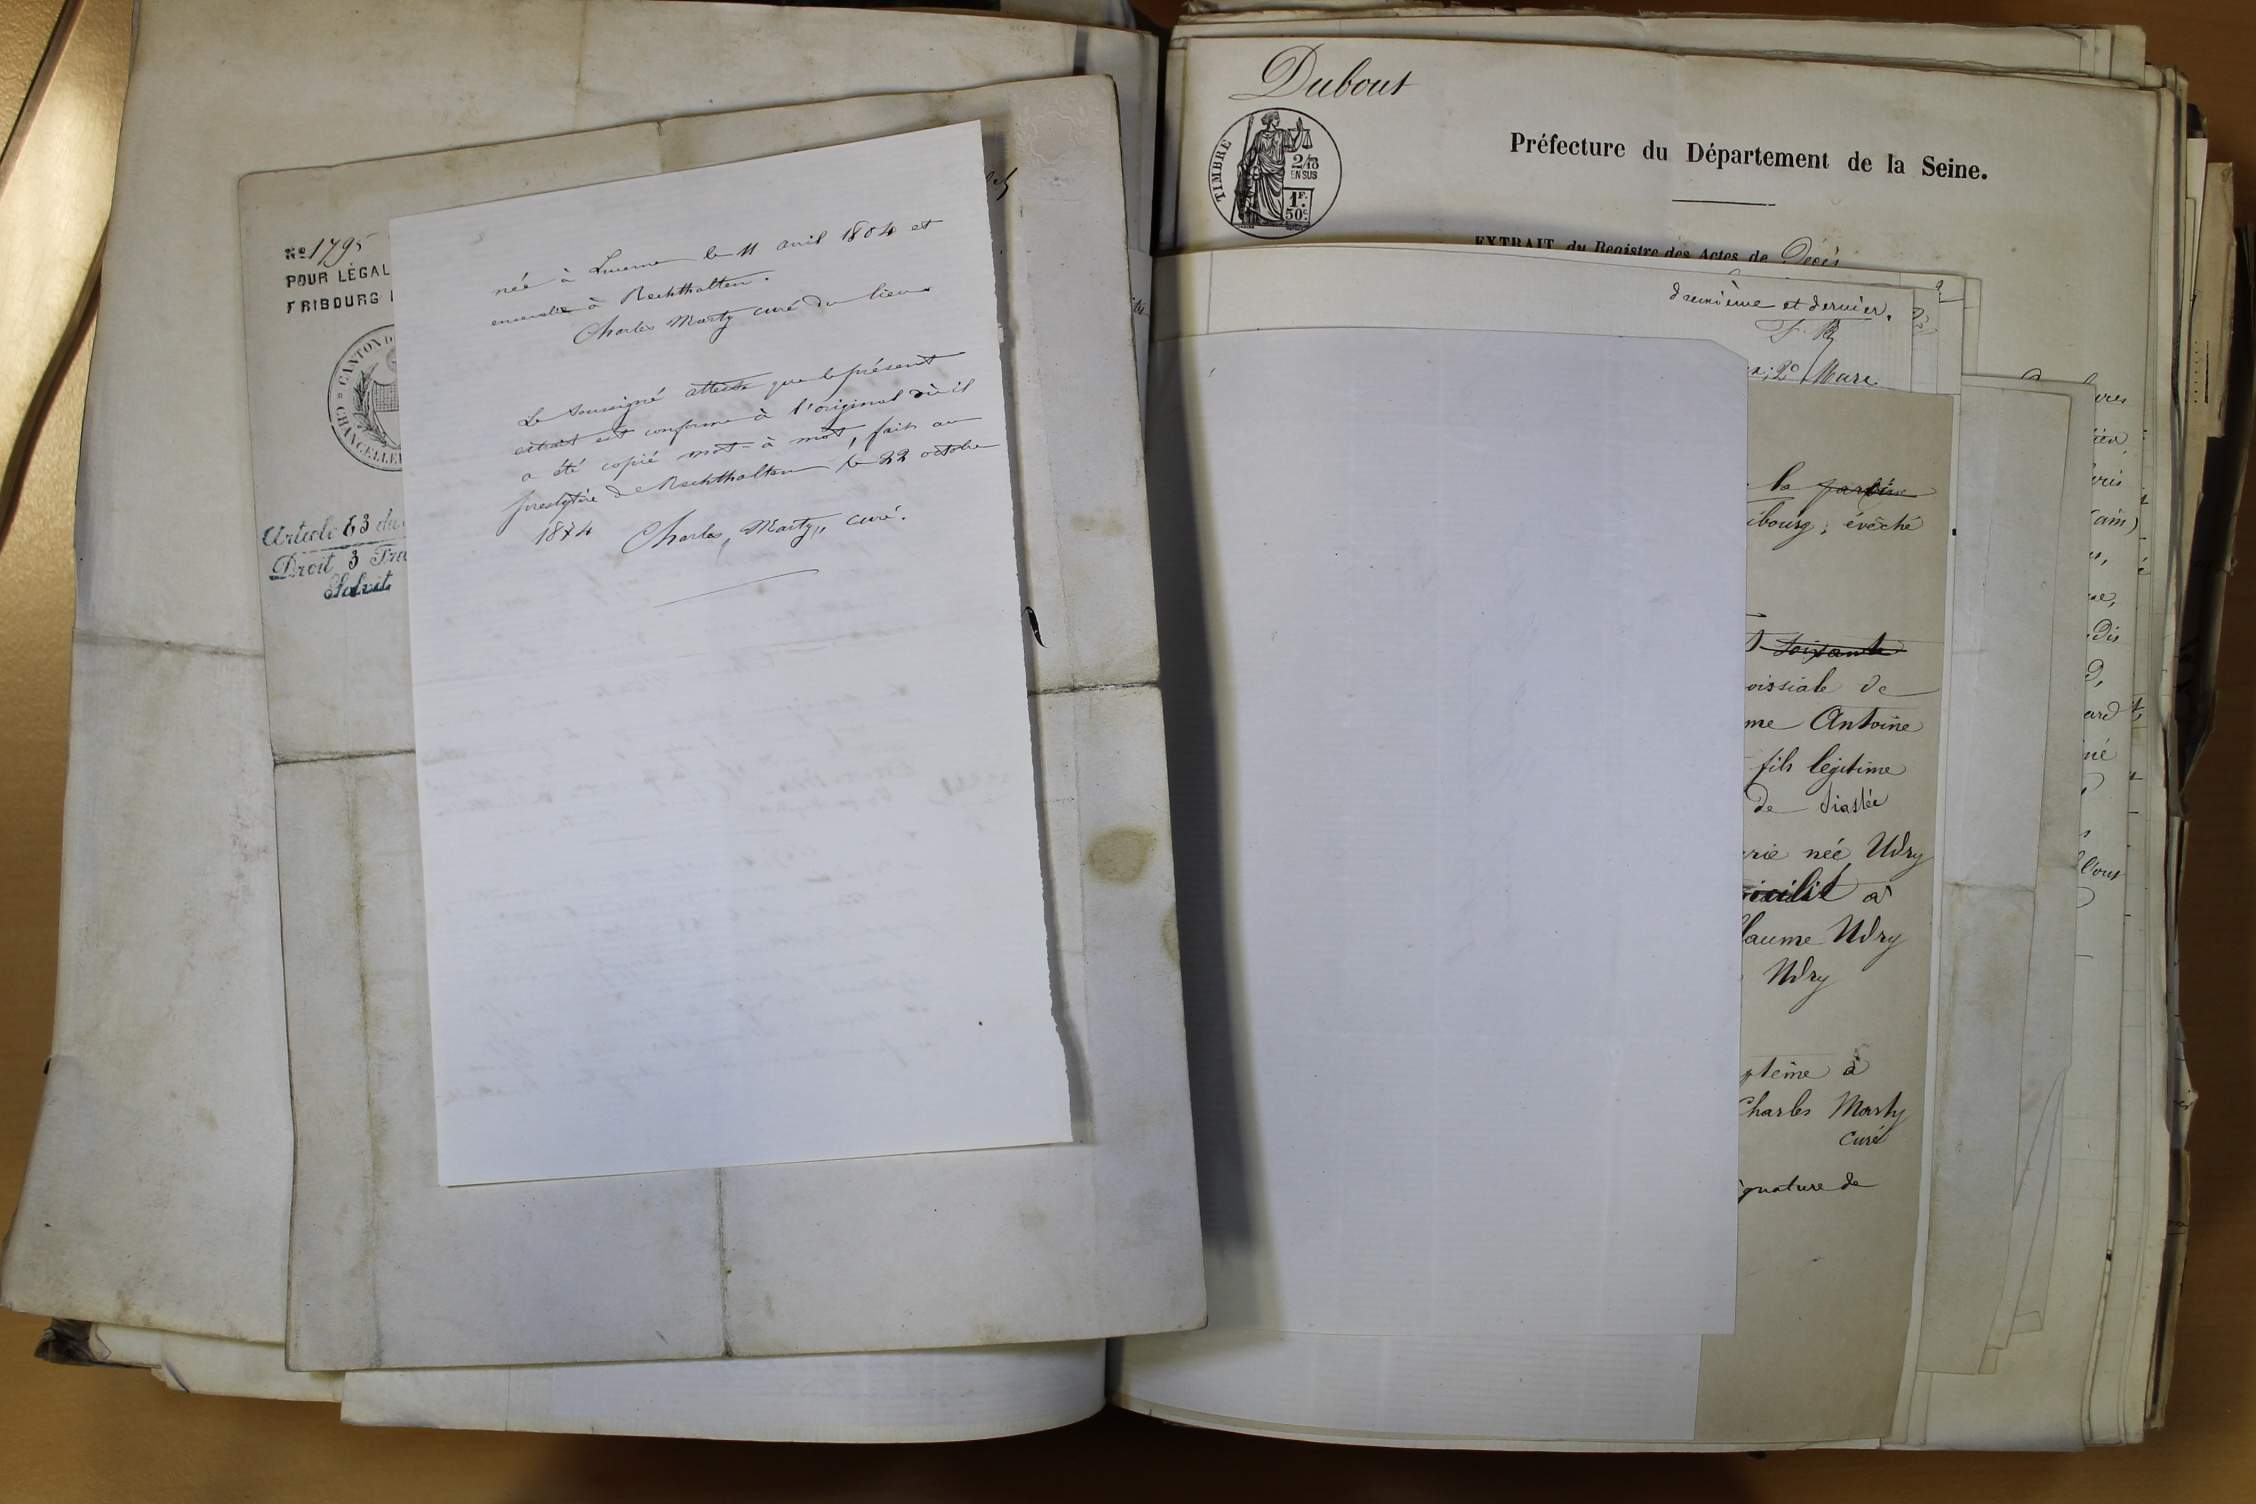 No 1795
POUR LÉGAL
FRIBOURG
CANTON D
CHANCELLE
Article 53 du
Droit 3 Fra
née à Lucerne le 11 avril 1804 et
ensevelie à Rechthalten.
Charles Marty curé du lieu
Le soussigné atteste que le présent
extrait est conforme à l'original d'où il
a été copié mot-à mot, fait au
presbytère de Rechthalten le 22 octobre
1874 Charles Marty, curé.
Dubout
TIMBRE
2/10
EN SUS
1F.
50c.
Préfecture du Département de la Seine.
EXTRAIT du Registre des Actes de Décès
deuxième et dernier.
2o Mare
la
ibourg, évêché
soixante
oissiale de
me Antoine
fils légitime
de
rie née Udry
à
laume Udry
Udry
ptême à
Charles Marty
curé
ignature de